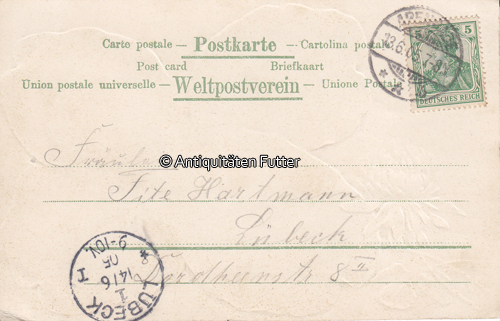 Carte postale — Postkarte — Cartolina postale
Post card Briefkaart
Union postale universelle — Weltpostverein — Unione Postale
5
DEUTSCHES REICH
13.6.05
© Antiquitäten Futter
Hartmann
Lübeck
8 II
LÜBECK
1
14/6
05
9-10V.
I